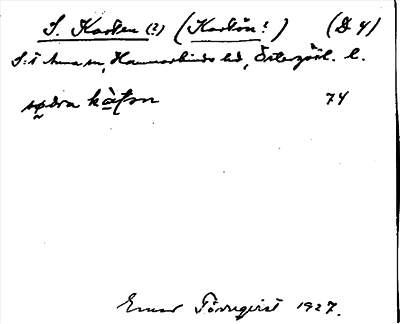 S. Karten (?) (Kartön?) (D 4)
S:t Anna sn, Hammarkinds hd, Östergötl. l.
södra kàṭọn 74
Einar Törnqvist 1927.